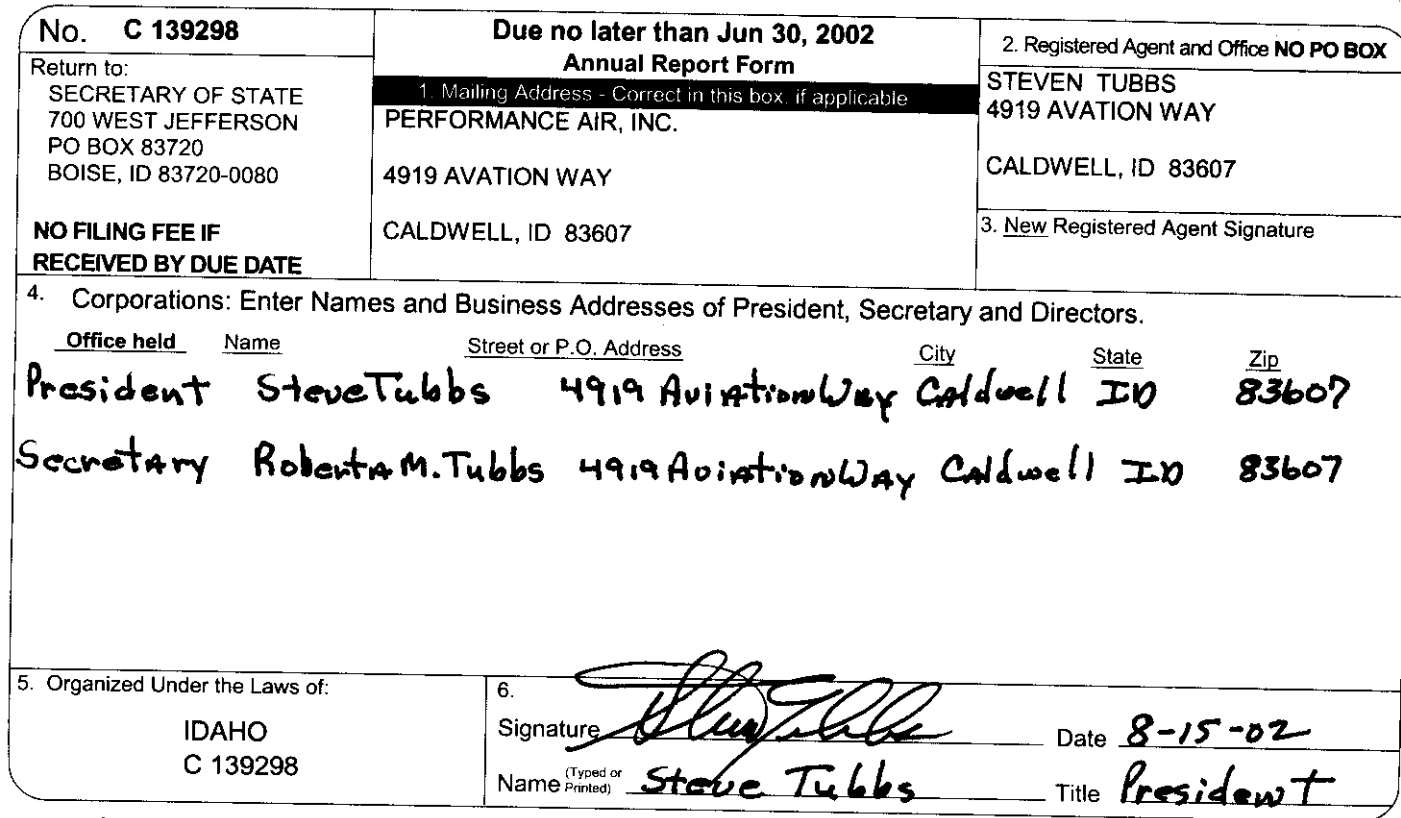 No. C 139298
Return to:
SECRETARY OF STATE
700 WEST JEFFERSON
PO BOX 83720
BOISE, ID 83720-0080
NO FILING FEE IF
RECEIVED BY DUE DATE
Due no later than Jun 30, 2002
Annual Report Form
1. Mailing Address - Correct in this box, if applicable
PERFORMANCE AIR, INC.
4919 AVATION WAY
CALDWELL, ID 83607
2. Registered Agent and Office NO PO BOX
STEVEN TUBBS
4919 AVATION WAY
CALDWELL, ID 83607
3. New Registered Agent Signature
4. Corporations: Enter Names and Business Addresses of President, Secretary and Directors.
Office held Name Street or P.O. Address City State Zip
President Steve Tubbs 4919 Aviation Way Caldwell ID 83607
Secretary Roberta M. Tubbs 4919 Aviation Way Caldwell ID 83607
5. Organized Under the Laws of:
IDAHO
C 139298
6.
Signature Steve Tubbs Date 8-15-02
Name (Typed or Printed) Steve Tubbs Title President